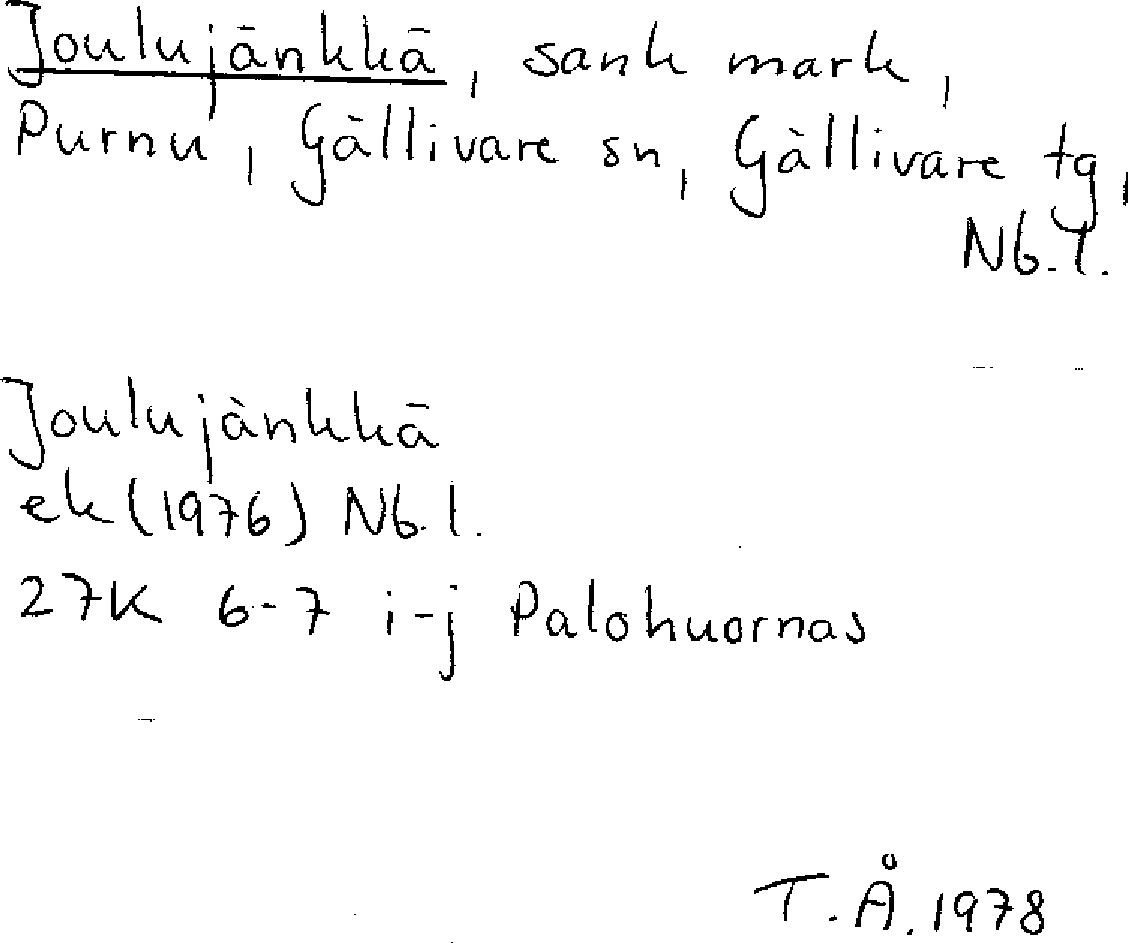 Joulujänkkä, sank mark,
Purnu, Gällivare sn, Gällivare tg,
Nb.l.
Joulujänkkä
ek (1976) Nb.l.
27K 6-7 i-j Palohuornas
T.Å.1978